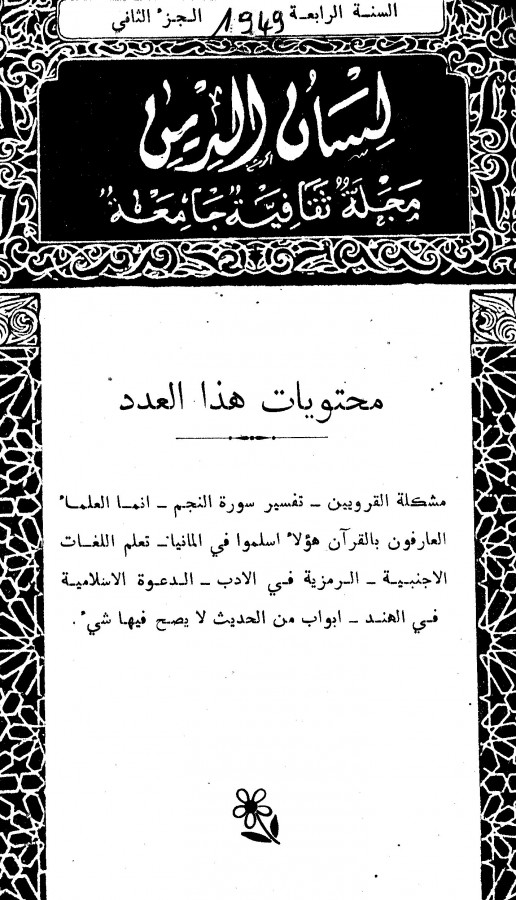 السنة الرابعة 1949 الجزء الثاني
لسان الدين
مجلة ثقافية جامعة
محتويات هذا العدد
مشكلة القرويين ـ تفسير سورة النجم ـ انما العلماء
العارفون بالقرآن هؤلاء اسلموا في المانيا ـ تعلم اللغات
الاجنبية ـ الرمزية في الادب ـ الدعوة الاسلامية
في الهند ـ ابواب من الحديث لا يصح فيها شيء .